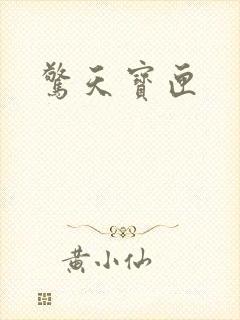 驚天寶匣
黄小仙